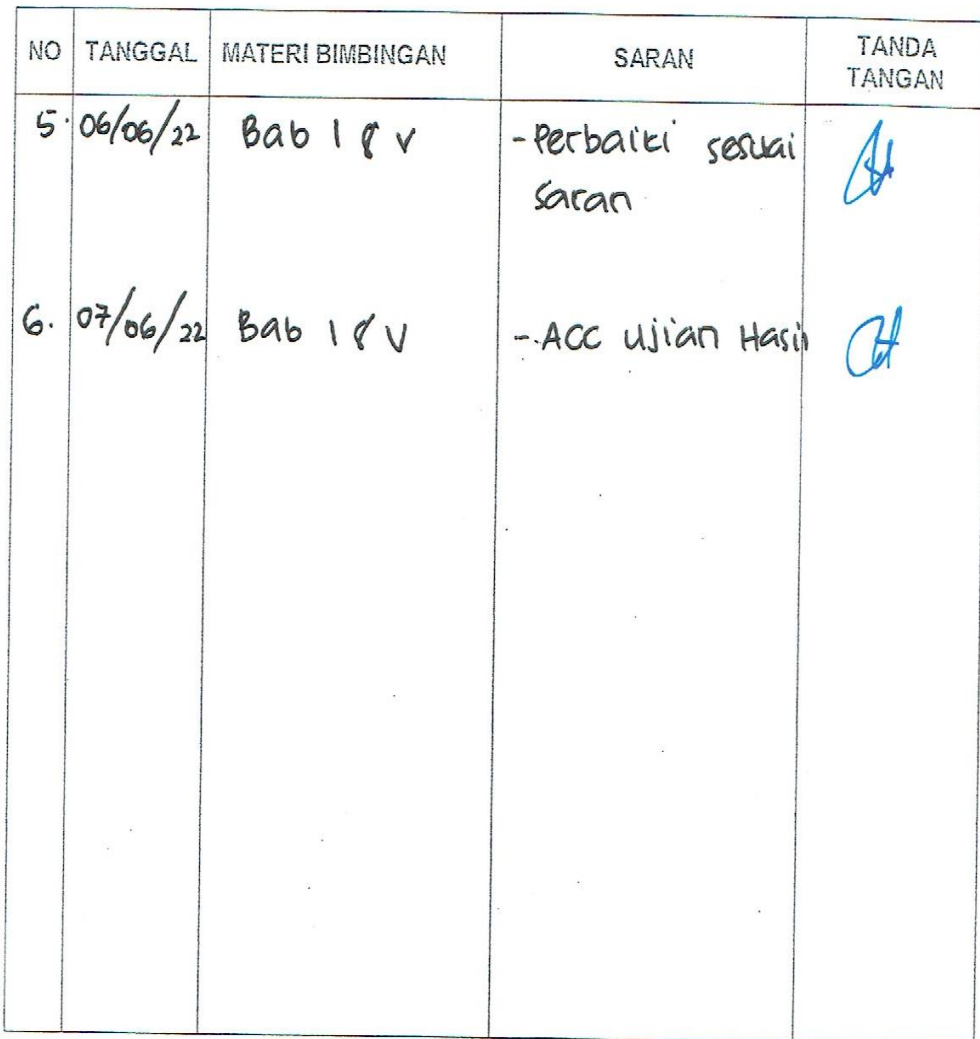 NO TANGGAL MATERI BIMBINGAN SARAN TANDA TANGAN
5. 06/06/22 Bab I & V - Perbaiki sesuai
saran
6. 07/06/22 Bab I & V - ACC Ujian Hasil